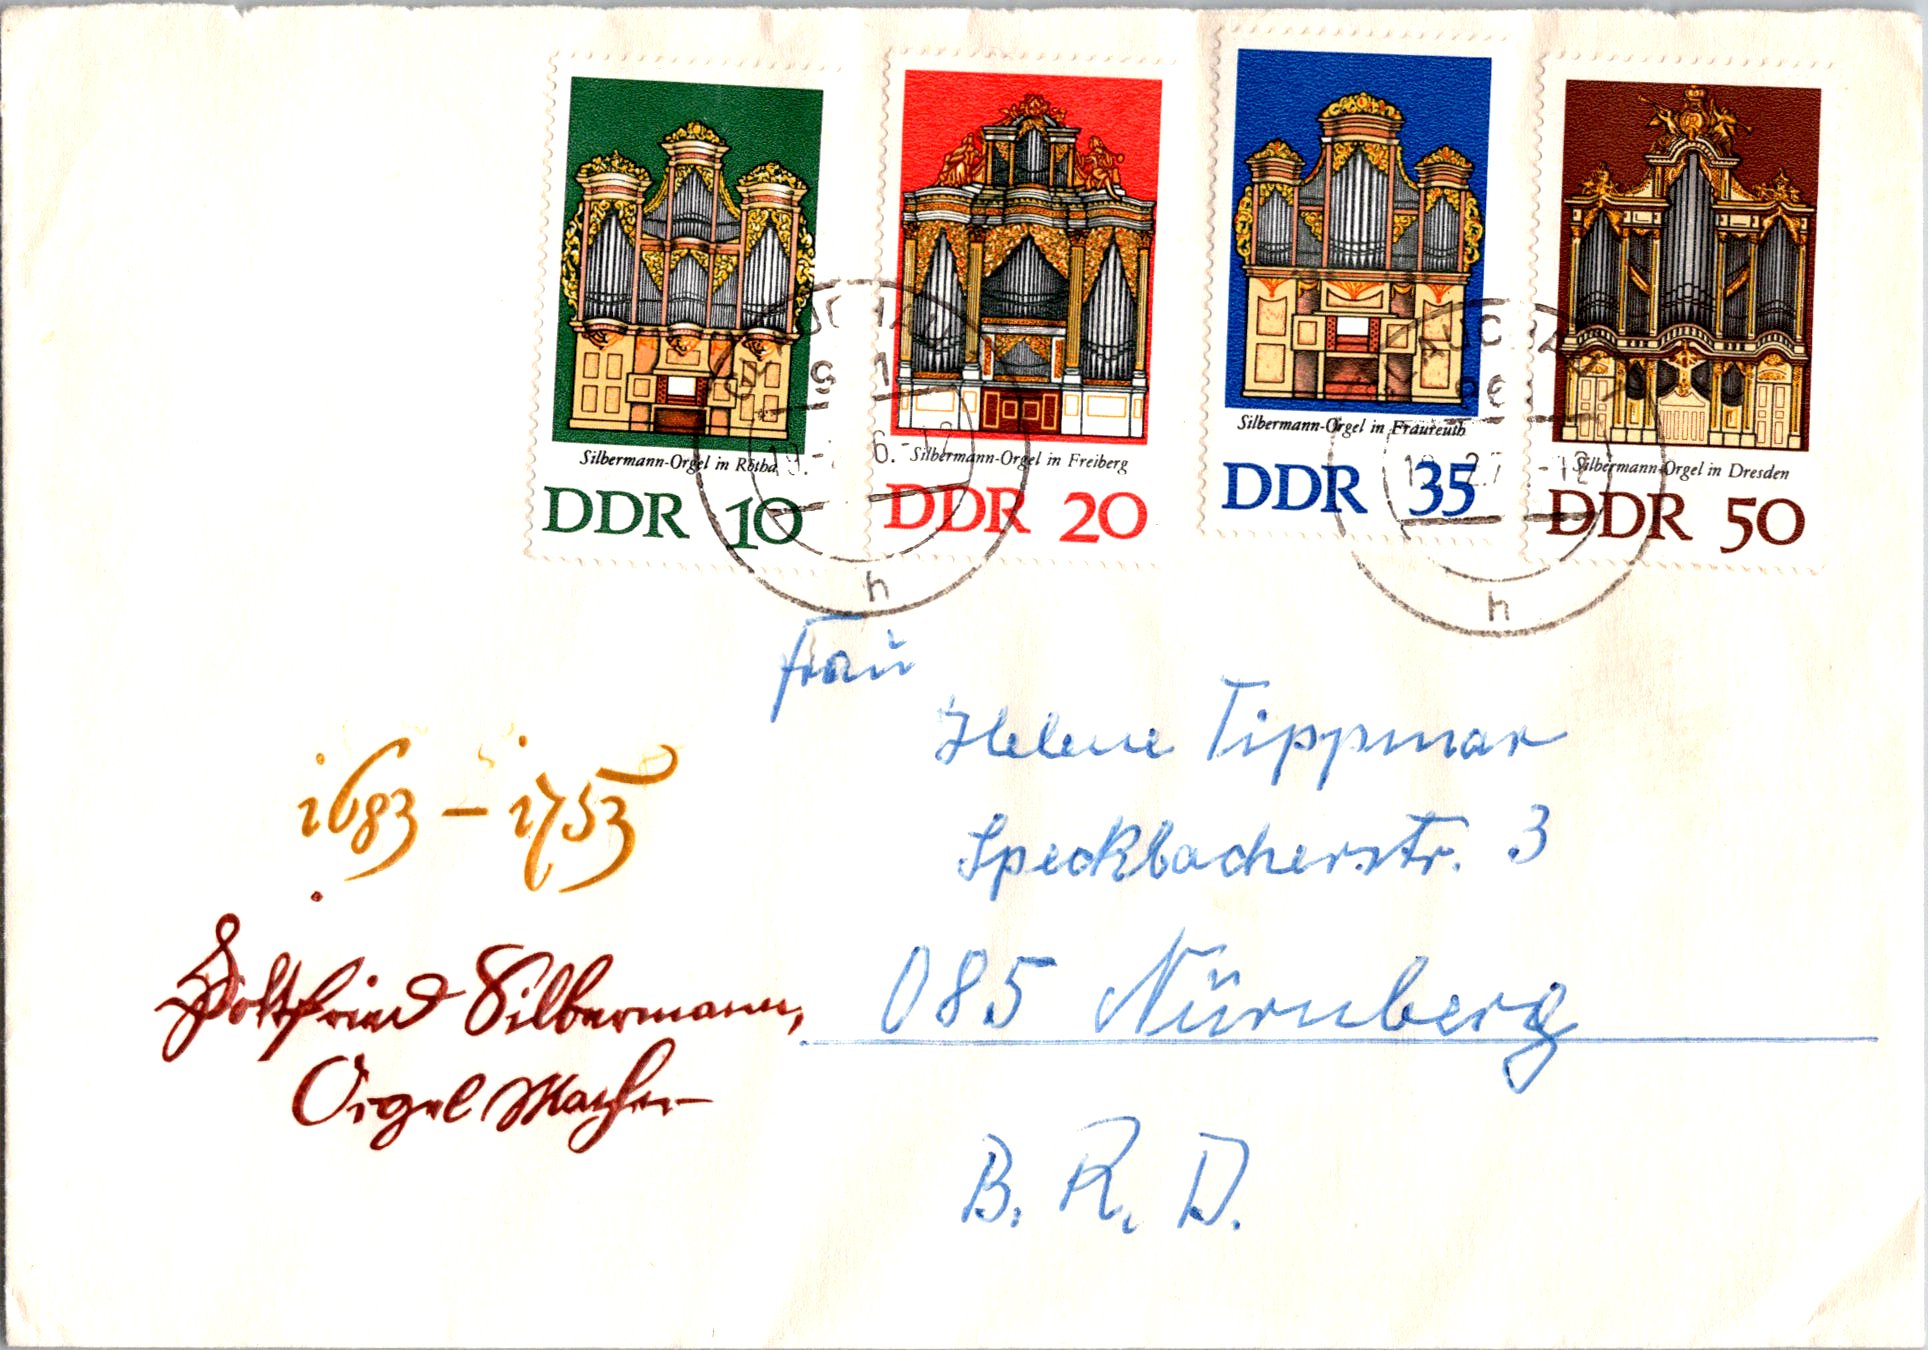 Silbermann-Orgel in Rötha
DDR 10
Silbermann-Orgel in Freiberg
DDR 20
Silbermann-Orgel in Fraureuth
DDR 35
Silbermann-Orgel in Dresden
DDR 50
GLAUCHAU
h
GLAUCHAU
h
Frau
Helene Tippmar
Speckbacherstr. 3
085 Nürnberg
B. R. D.
1683 – 1753
Gottfried Silbermann,
Orgel Macher